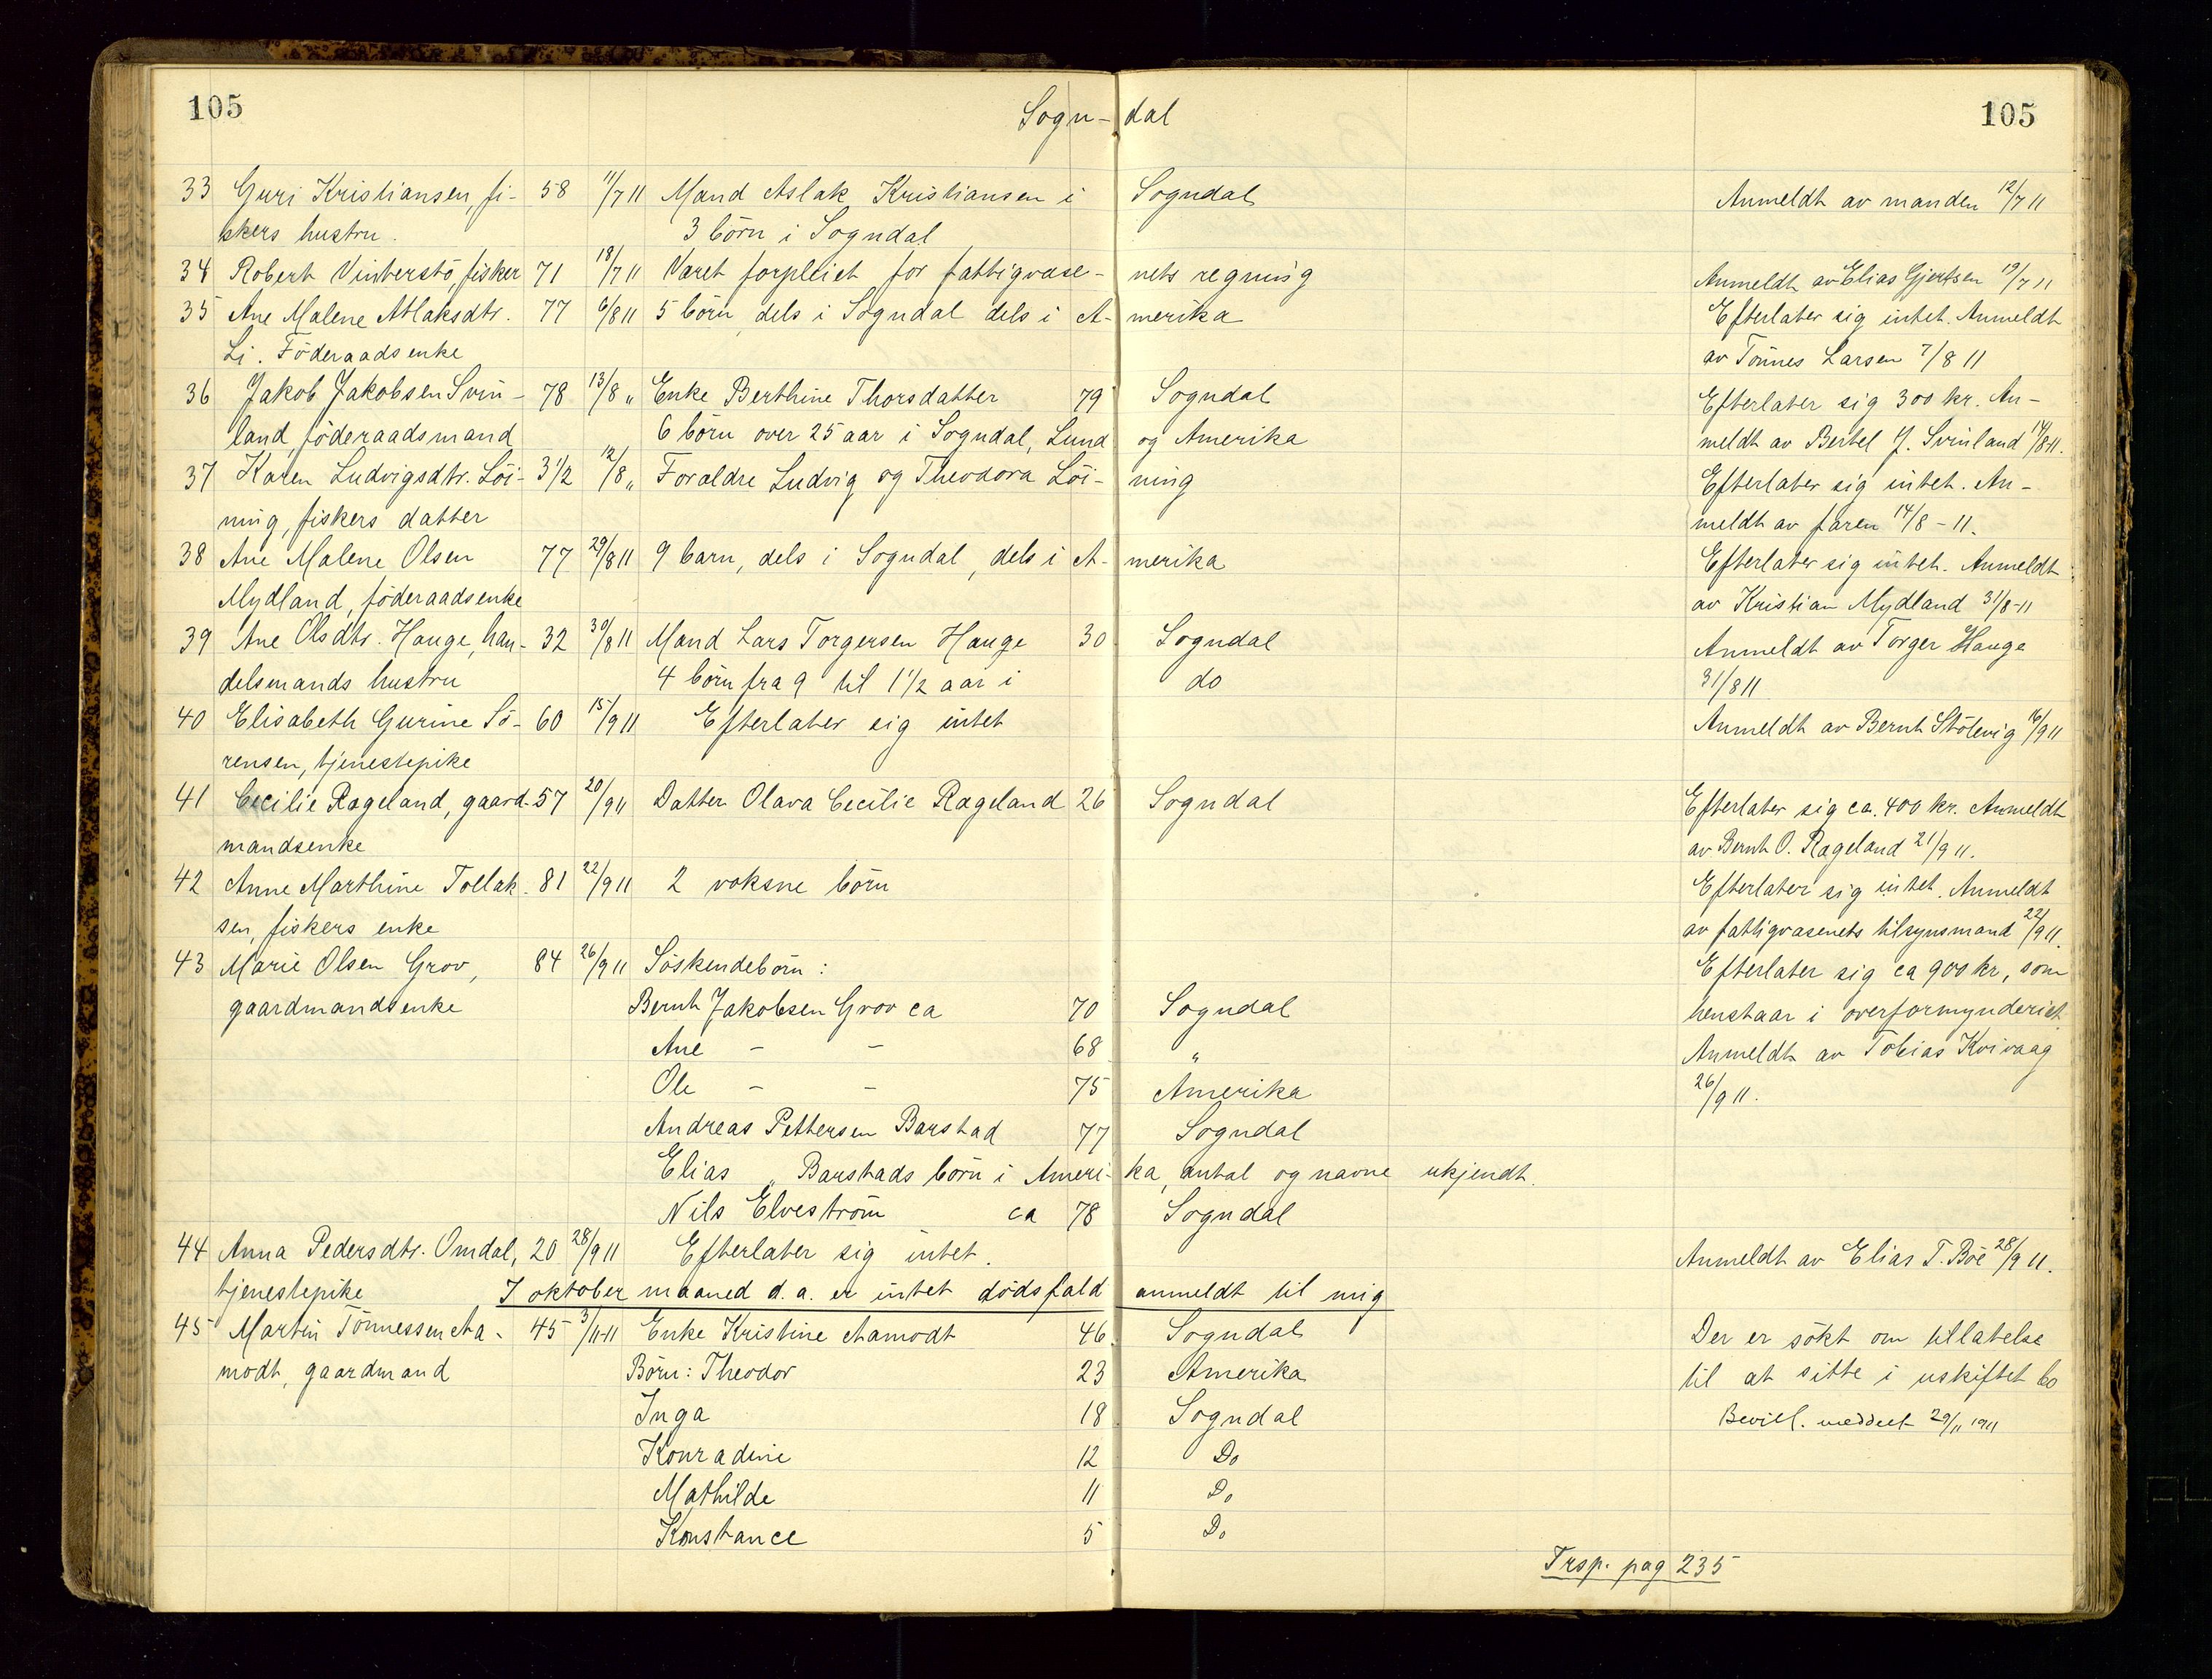 105 Sogn- dal 105
33 Guri Kristiansen, fi- 58 11/7 11 Mand Aslak Kristiansen i Sogndal Anmeldt av manden 12/7 11
skers hustru. 3 børn i Sogndal
34 Robert Vinterstø, fisker 71 18/7 11 Været forpleiet for fattigvæse- nets regning Anmeldt av Elias Gjertsen 19/7 11
35 Ane Malene Atlaksdtr. 77 6/8 11 5 børn dels i Sogndal dels i A- merika Efterlater sig intet. Anmeldt
Li. Føderaadsenke av Tønnes Larsen 7/8 11
36 Jakob Jakobsen Svin- 78 13/8 „ Enke Berthine Thorsdatter 79 Sogndal Efterlater sig 300 kr. An-
land, føderaadsmand 6 børn over 25 aar i Sogndal, Lund og Amerika meldt av Bertel J. Svinland 14/8 11.
37 Karen Ludvigsdtr. Løi- 3 1/2 12/8 „ Forældre Ludvig og Theodora Løi- ning Efterlater sig intet. An-
ning, fiskers datter meldt av faren 14/8 - 11.
38 Ane Malene Olsen 77 29/8 11 9 barn, dels i Sogndal, dels i A- merika Efterlater sig intet. Anmeldt
Mydland, føderaadsenke av Kristian Mydland 31/8-11
39 Ane Olsdtr. Hauge, han- 32 30/8 11 Mand Lars Torgersen Hauge 30 Sogndal Anmeldt av Torger Hauge
delsmands hustru 4 børn fra 9 til 1 1/2 aar i do 31/8 11
40 Elisabeth Gurine Sø- 60 15/9 11 Efterlater sig intet Anmeldt av Bernt Stølevig 16/9 11
rensen, tjenestepike
41 Cecilie Rægeland, gaard- 57 20/9 11 Datter Olava Cecilie Rægeland 26 Sogndal Efterlater sig ca. 400 kr. Anmeldt
mandsenke av Bernt O. Rægeland 21/9 11.
42 Anne Marthine Tollak- 81 22/9 11 2 voksne børn Efterlater sig intet. Anmeldt
sen, fiskers enke av fattigvæsenets tilsynsmand 22/9 11.
43 Marie Olsen Grov, 84 26/9 11 Søskendebørn: Efterlater sig ca 900 kr, som
gaardmandsenke Bernt Jakobsen Grov ca 70 Sogndal henstaar i overformynderiet
Ane - - 68 „ Anmeldt av Tobias Kvivaag
Ole - - 75 Amerika 26/9 11.
Andreas Pettersen Barstad 77 Sogndal
Elias „ Barstads børn i Ameri- ka, antal og navne ukjendt.
Nils Elvestrøm ca 78 Sogndal
44 Anna Pedersdtr. Omdal, 20 28/9 11 Efterlater sig intet. Anmeldt av Elias T. Bøe 28/9 11.
tjenestepike I oktober maaned d. a. er intet dødsfald anmeldt til mig
45 Martin Tønnessen Aa- 45 3/11-11 Enke Kristine Aamodt 46 Sogndal Der er søkt om tillatelse
modt, gaardmand Børn: Theodor 23 Amerika til at sitte i uskiftet bo
Inga 18 Sogndal Bevill. meddeelt 29/11 1911
Konradine 12 Do
Mathilde 11 Do
Konstance 5 Do
Trsp. pag 235